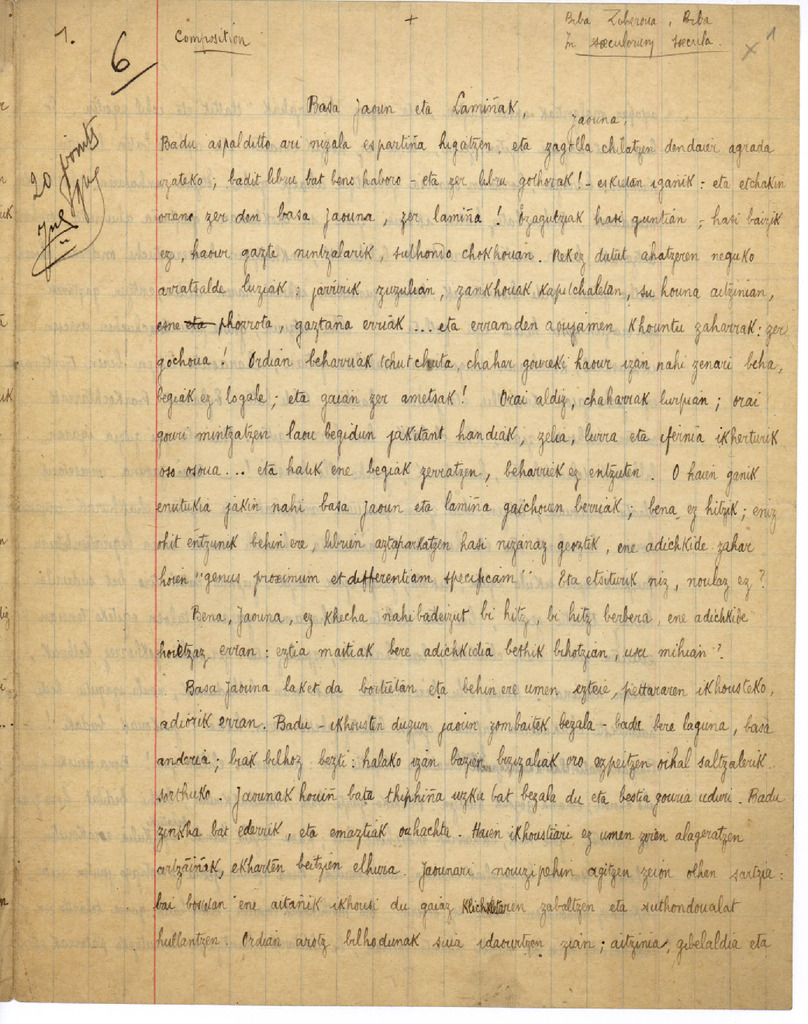 1.
6
+
Composition
Biba Ziberoua, Biba
In sæculorum sæcula.
x 1
20 points
Basa Jaoun eta Lamiñak,
Jaouna,
Badu aspalditto ari nizala espartiña higatzen, eta zagolla chilatzen dendaier agrada
izateko; badit libru bat beno haboro – eta zer libru gothorak! – eskutan iganik: eta etchakin
orano zer den basa Jaouna, zer lamiña! Ezagutziak hasi guntian; hasi baizik
ez, haour gazte nintzalarik, suthondo chokhouan. Nekez dutut ahatzeren neguko
arratsalde luziak: jarririk zuzulian, zankhouak kapitchaletan, su houna aitzinian,
esne phorrota, gaztaña erriak ... eta erran den aoujamen khountu zaharrak: zer
gochoua! Ordian beharriak tchutchuta, chahar goureki haour izan nahi zenari beha,
begiak ez logale; eta gaian zer ametsak! Orai aldiz, chaharrak lurpian; orai
gouri mintzatzen laou begidun jakitant handiak, zelia, lurra eta ifernia ikherturik
oso osoua... eta halik ene begiak zerratzen, beharriek ez entzuten. O haien ganik
enutukia jakin nahi basa Jaoun eta lamiña gaichouen berriak; bena ez hitzik; eniz
ohit entzunek behin ere, libruen aztaparkatzen hasi nizanaz geoztik, ene adichkide zahar
horien "genus proximum et differentiam specificam!" Eta etsiturik niz, noulaz ez?
Bena, Jaouna, ez khecha nahi badeizut bi hitz, bi hitz berbera, ene adichkide
horietzaz erran: eztia maitiak bere adichkidia bethik bihotzian, usu mihian?
Basa Jaouna laket da bortietan eta behin ere umen ezteie, pettararen ikhousteko,
adiorik erran. Badu – ikhousten dugun jaoun zombaitek bezala – badu bere laguna, basa
anderia; biak bilhoz bezti: halako izan bazien bizizaliak oro ezpeitzen oihal saltzalerik
sorthuko. Jaounak houin bata thiphiña uzku bat bezala du eta bestia gouria uduri. Badu
zinkha bat ederrik, eta emaztiak ouhachtu. Haien ikhoustiari ez umen ziren alageratzen
artzaiñak, ekharten beitzien elhura. Jaounari nouzipehin agitzen zeion olhen sartzia:
bai bostetan ene aitañik ikhousi du gaiaz klichketaren zabaltzen eta suthondoualat
hullantzen. Ordian arotz bilhodunak suia idaourtzen zian; aitzinia, gibelaldia eta